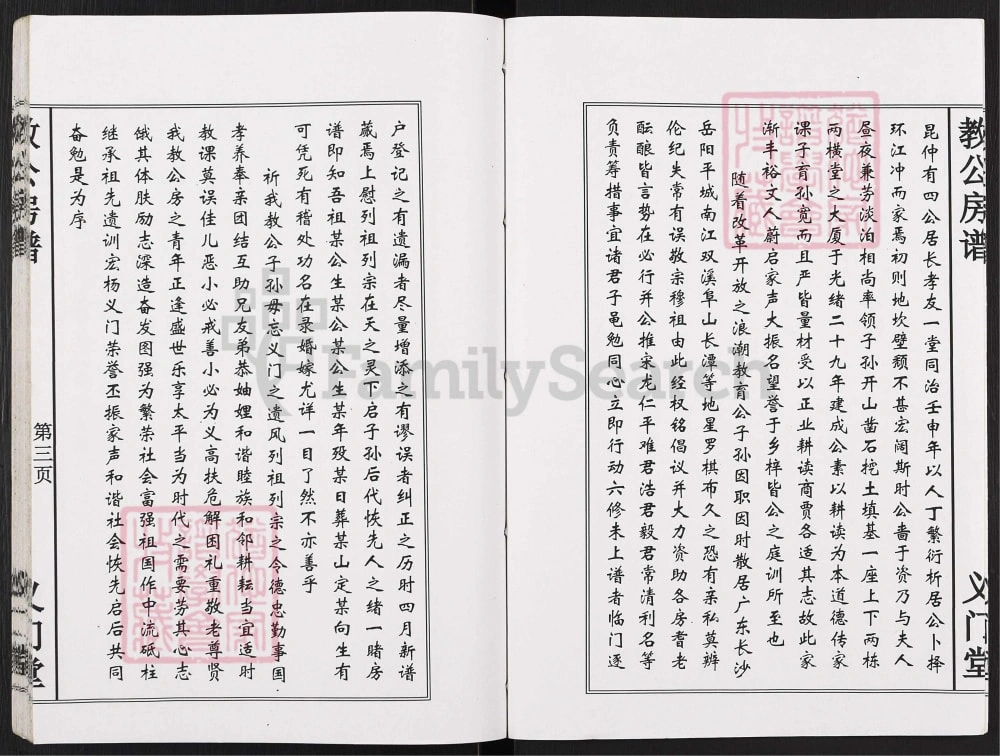 教公房谱
义门堂
昆仲有四公居长孝友一堂同治壬申年以人丁繁衍析居公卜择
环江冲而家焉初则地坎壁颓不甚宏阔斯时公啬于资乃与夫人
昼夜兼劳淡泊相尚率领子孙开山凿石挖土填基一座上下两栋
两横堂之大厦于光绪二十九年建成公素以耕读为本道德传家
课子育孙宽而且严皆量材受以正业耕读商贾各适其志故此家
渐丰裕文人蔚启家声大振名望誉于乡梓皆公之庭训所至也
随着改革开放之浪潮教育公子孙因职因时散居广东长沙
岳阳平城南江双溪阜山长潭等地星罗棋布久之恐有亲私莫辨
伦纪失常有误敬宗穆祖由此经权铭倡议并大力资助各房耆老
酝酿皆言势在必行并公推宋龙仁平难君浩君毅君常清利名等
负责筹措事宜诸君子黾勉同心立即行动六修未上谱者临门逐
户登记之有遗漏者尽量增添之有谬误者纠正之历时四月新谱
葳焉上慰列祖列宗在天之灵下启子孙后代恢先人之绪一睹房
谱即知吾祖某公生某公某公生某年殁某日葬某山定某向生有
可凭死有稽处功名在录婚嫁尤详一目了然不亦善乎
祈我教公子孙毋忘义门之遗风列祖列宗之令德忠勤事国
孝养奉亲团结互助兄友弟恭妯娌和谐睦族和邻耕耘当宜适时
教课莫误佳儿恶小必戒善小必为义高扶危解困礼重敬老尊贤
我教公房之青年正逢盛世乐享太平当为时代之需要劳其心志
饿其体肤励志深造奋发图强为繁荣社会富强祖国作中流砥柱
继承祖先遗训宏杨义门荣誉丕振家声和谐社会恢先启后共同
奋勉是为序
第三页
FamilySearch